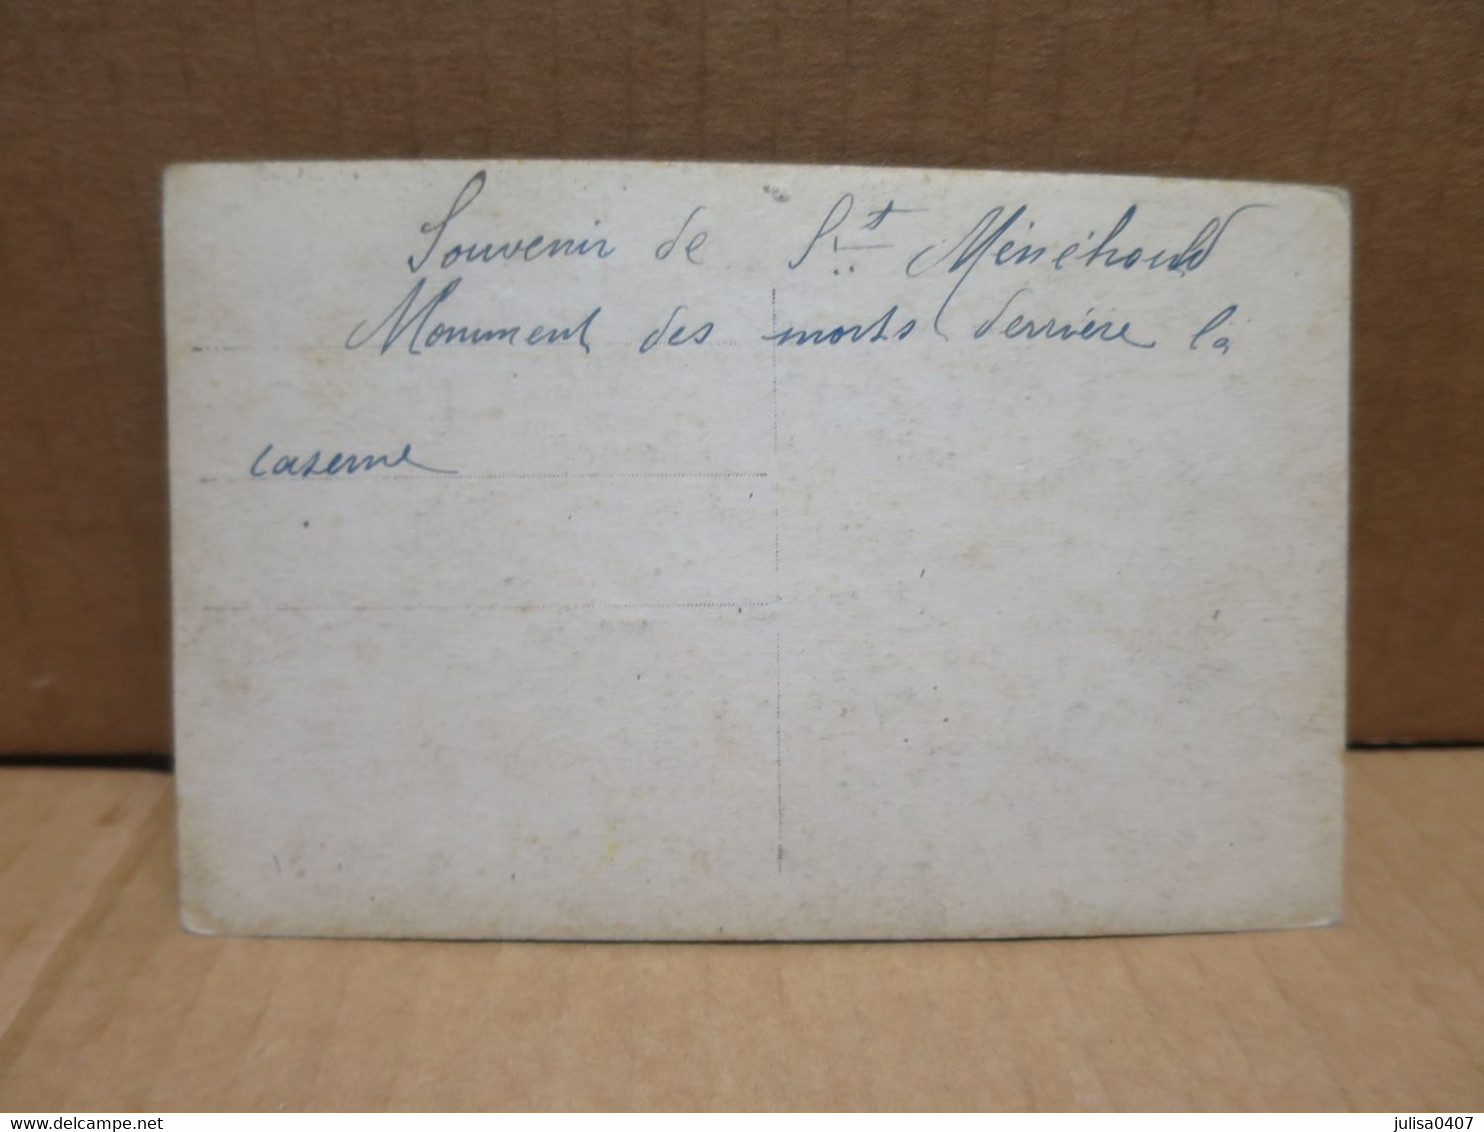 Souvenir de St Ménéhould
Monument des morts derrière la
caserne
julisa0407